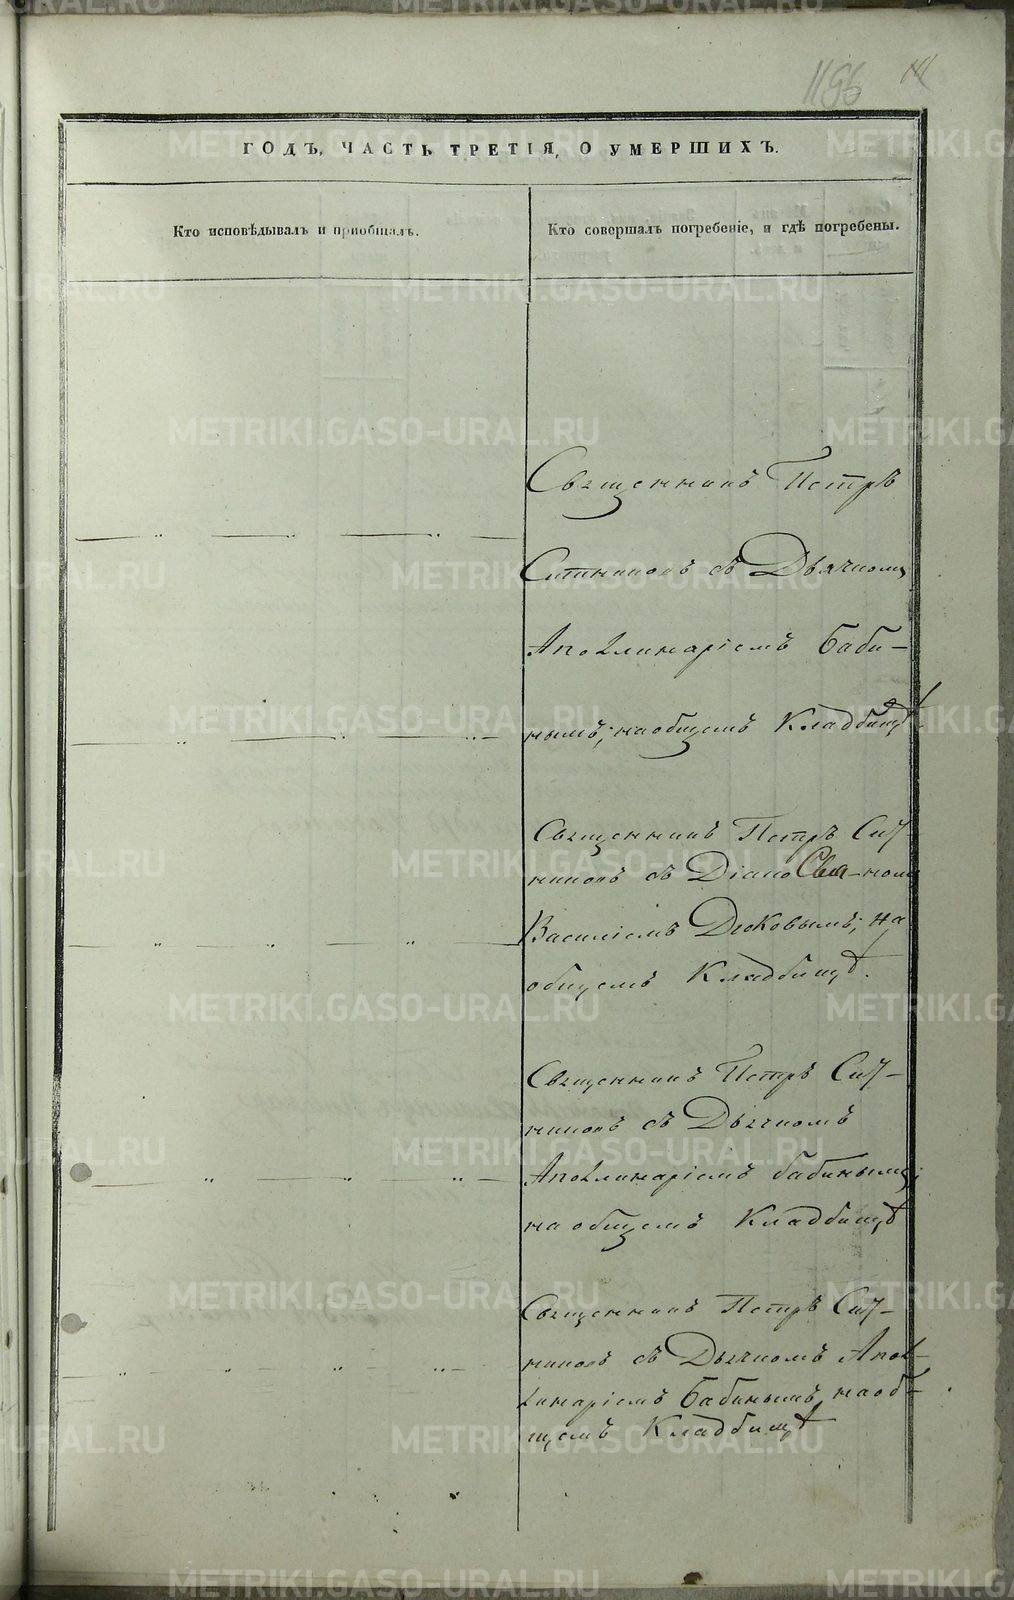 1196
ГОДЪ, ЧАСТЬ ТРЕТІЯ, О УМЕРШИХЪ.
Кто исповѣдывалъ и пріобщалъ.
Кто совершалъ погребеніе, и гдѣ погребены.
Священникъ Петръ
Ситниковъ съ Дьячкомъ
Аполлинаріемъ Баби-
нымъ; на общемъ Кладбищѣ
Священникъ Петръ Сит-
никовъ съ Діако
Василіемъ на
общемъ Кладбищѣ.
Священникъ Петръ Сит-
никовъ съ Дьячкомъ
Аполлинаріемъ Бабинымъ;
на общемъ Кладбищѣ
Священникъ Петръ Сит-
никовъ съ Дьячкомъ Апол-
линаріемъ Бабинымъ, на об-
щемъ Кладбищѣ
METRIKI.GASO-URAL.RU